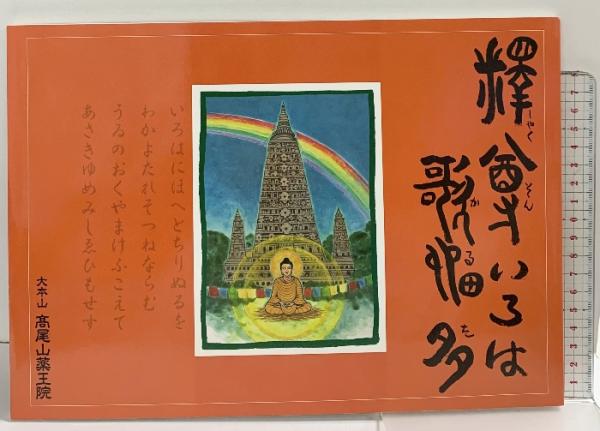 釋尊いろは
しゃくそん
歌留多
かるた
いろはにほへとちりぬるを
わかよたれそつねならむ
うゐのおくやまけふこえて
あさきゆめみしゑひもせす
大本山 髙尾山薬王院